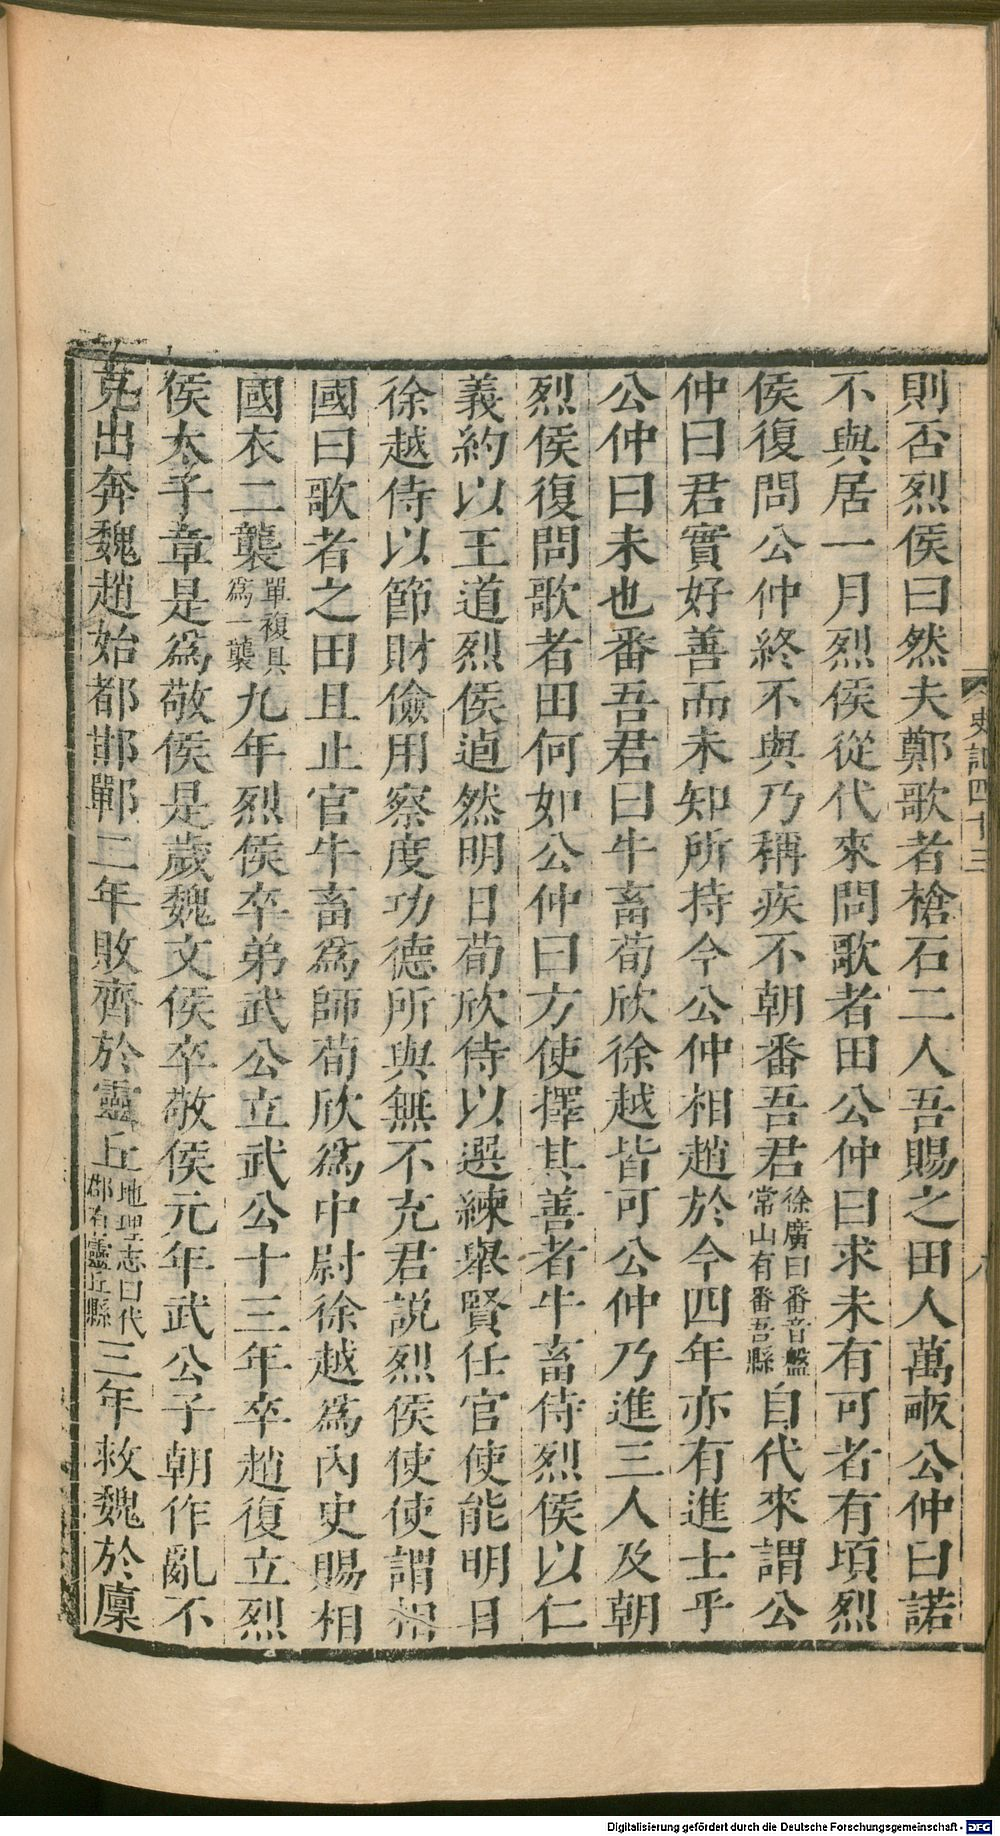 則否烈侯曰然夫鄭歌者槍石二人吾賜之田人萬畝公仲曰諾
不與居一月烈侯從代來問歌者田公仲曰求未有可者有頃烈
侯復問公仲終不與乃稱疾不朝番吾君徐廣曰番音盤常山有番吾縣自代來謂公
仲曰君實好善而未知所持今公仲相趙於今四年亦有進士乎
公仲曰未也番吾君曰牛畜荀欣徐越皆可公仲乃進三人及朝
烈侯復問歌者田何如公仲曰方使擇其善者牛畜侍烈侯以仁
義約以王道烈侯逌然明日荀欣侍以選練舉賢任官使能明日
徐越侍以節財儉用察度功德所與無不充君說烈侯使使謂相
國曰歌者之田且止官牛畜爲師荀欣爲中尉徐越爲內史賜相
國衣二襲單複具爲一襲九年烈侯卒弟武公立武公十三年卒趙復立烈
侯太子章是爲敬侯是歲魏文侯卒敬侯元年武公子朝作亂不
克出奔魏趙始都邯鄲二年敗齊於靈丘地理志曰代郡有靈丘縣三年救魏於廩
史記四十三
八
Digitalisierung gefördert durch die Deutsche Forschungsgemeinschaft - DFG